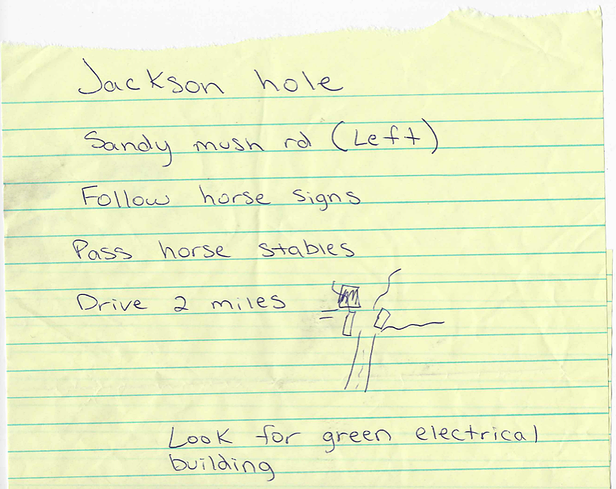 Jackson hole
Sandy mush rd (Left)
Follow horse signs
Pass horse stables
Drive 2 miles
Look for green electrical
building